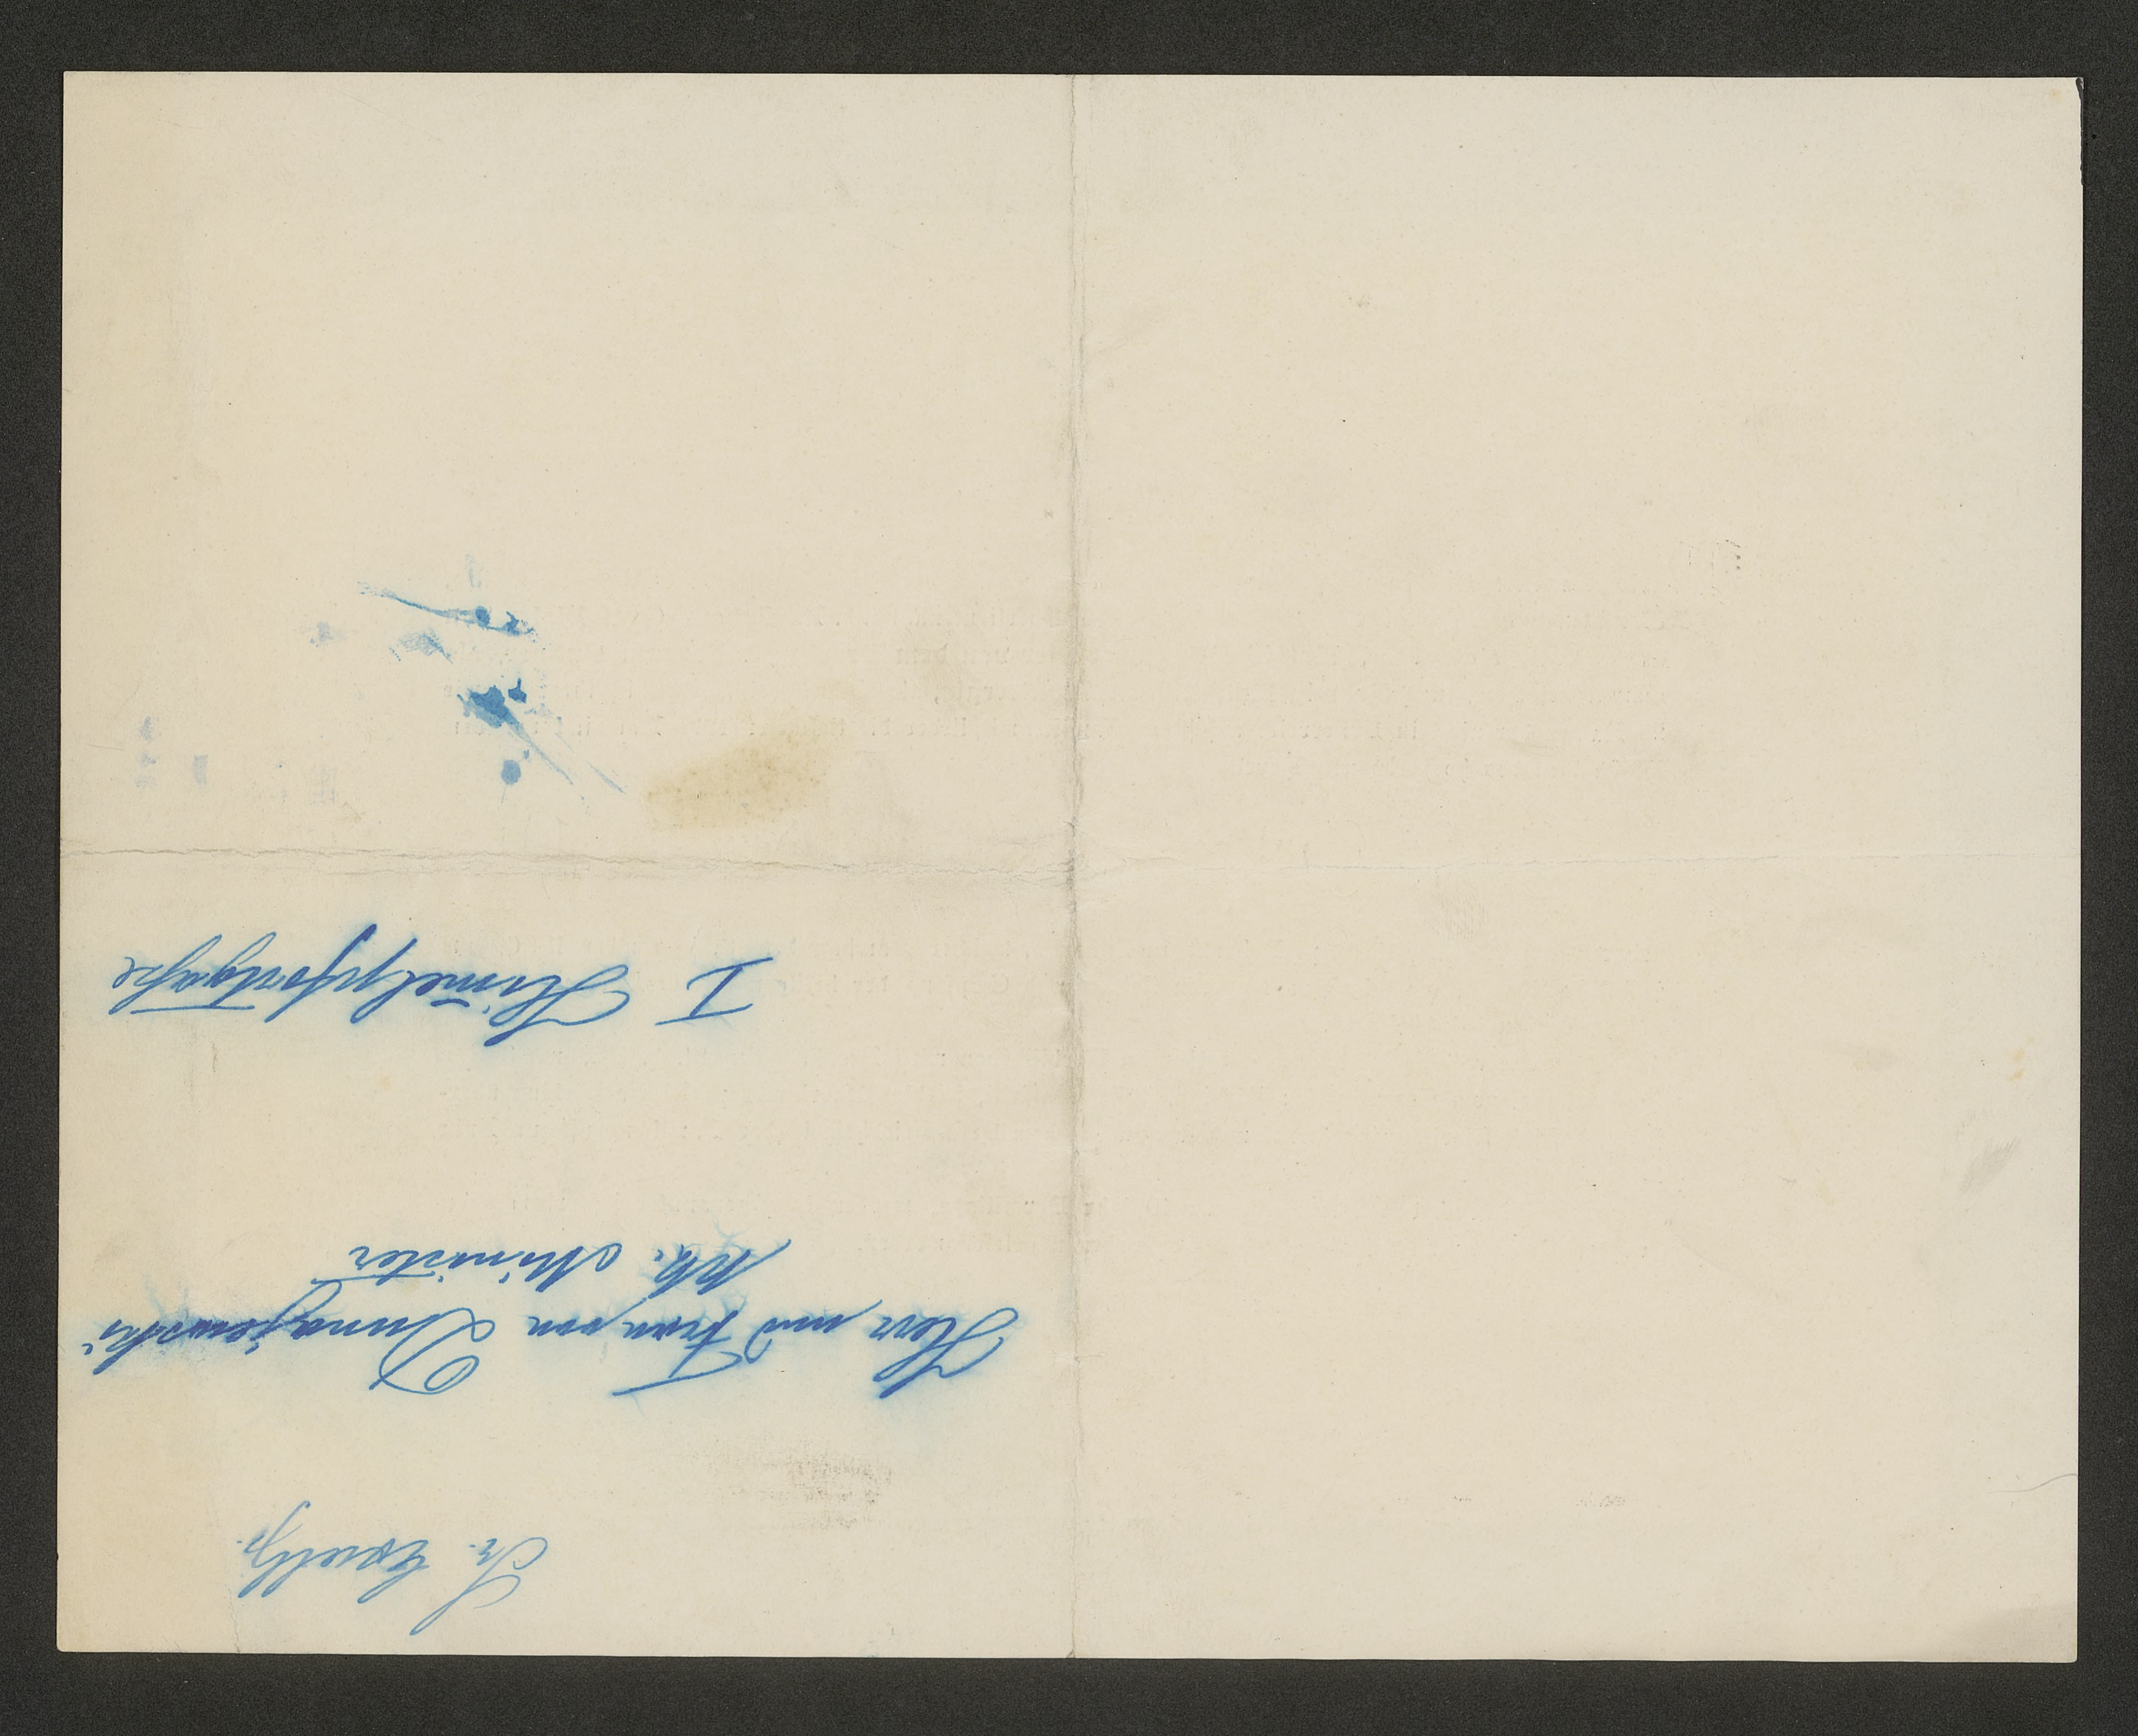 Sr. Excellz.
Herr und Frau von Dunajewski
kk. Minister
I Himelpfortgaße